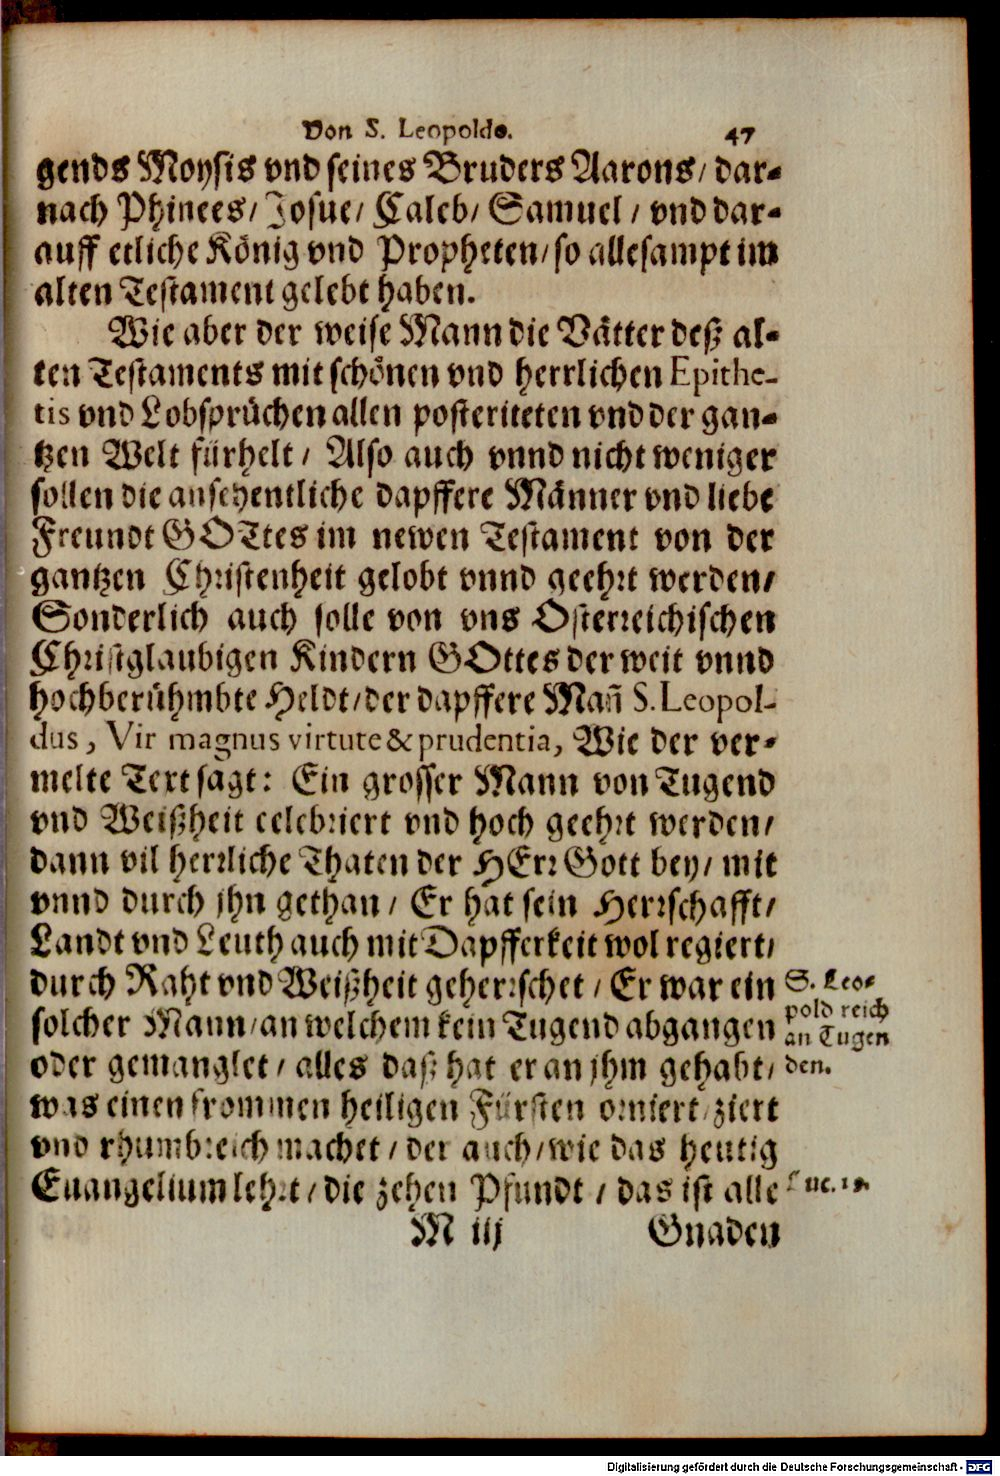 Von S. Leopoldo. 47
gends Moysis vnd seines Bruders Aarons/ dar-
nach Phinees/ Josue/ Caleb/ Samuel / vnd dar-
auff etliche König vnd Propheten/ so allesampt im
alten Testament gelebt haben.
Wie aber der weise Mann die Vätter deß al-
ten Testaments mit schönen vnd herrlichen Epithe-
tis vnd Lobsprüchen allen posteriteten vnd der gan-
tzen Welt fürhelt / Also auch vnnd nicht weniger
sollen die ansehentliche dapffere Männer vnd liebe
Freundt GOTtes im newen Testament von der
gantzen Christenheit gelobt vnnd geehrt werden/
Sonderlich auch solle von vns Osterreichischen
Christglaubigen Kindern GOttes der weit vnnd
hochberühmbte Heldt/ der dapffere Mañ S. Leopol-
dus, Vir magnus virtute & prudentia, Wie der ver-
melte Text sagt: Ein grosser Mann von Tugend
vnd Weißheit celebriert vnd hoch geehrt werden/
dann vil herrliche Thaten der HErr Gott bey/ mit
vnnd durch jhn gethan / Er hat sein Herrschafft/
Landt vnd Leuth auch mit Dapfferkeit wol regiert/
durch Raht vnd Weißheit geherrschet / Er war ein
solcher Mann/ an welchem kein Tugend abgangen
oder gemanglet / alles daß hat er an jhm gehabt/
was einen frommen heiligen Fürsten orniert/ ziert
vnd rhumbreich machet / der auch/ wie das heutig
Euangelium lehrt / die zehen Pfundt / das ist alle
M iij Gnaden
S. Leo-
pold reich
an Tugen
den.
Luc. 19.
Digitalisierung gefördert durch die Deutsche Forschungsgemeinschaft - DFG